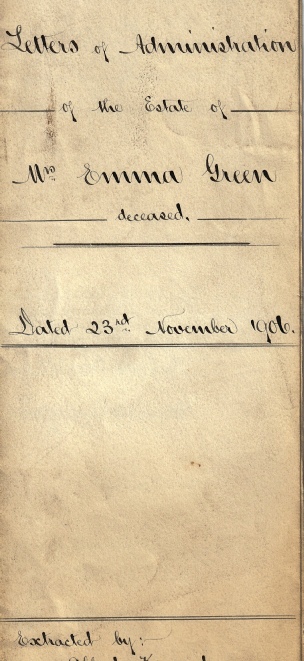 Letters of Administration
of the Estate of
Mrs Emma Green
deceased.
Dated 23rd November 1906.
Extracted by:-